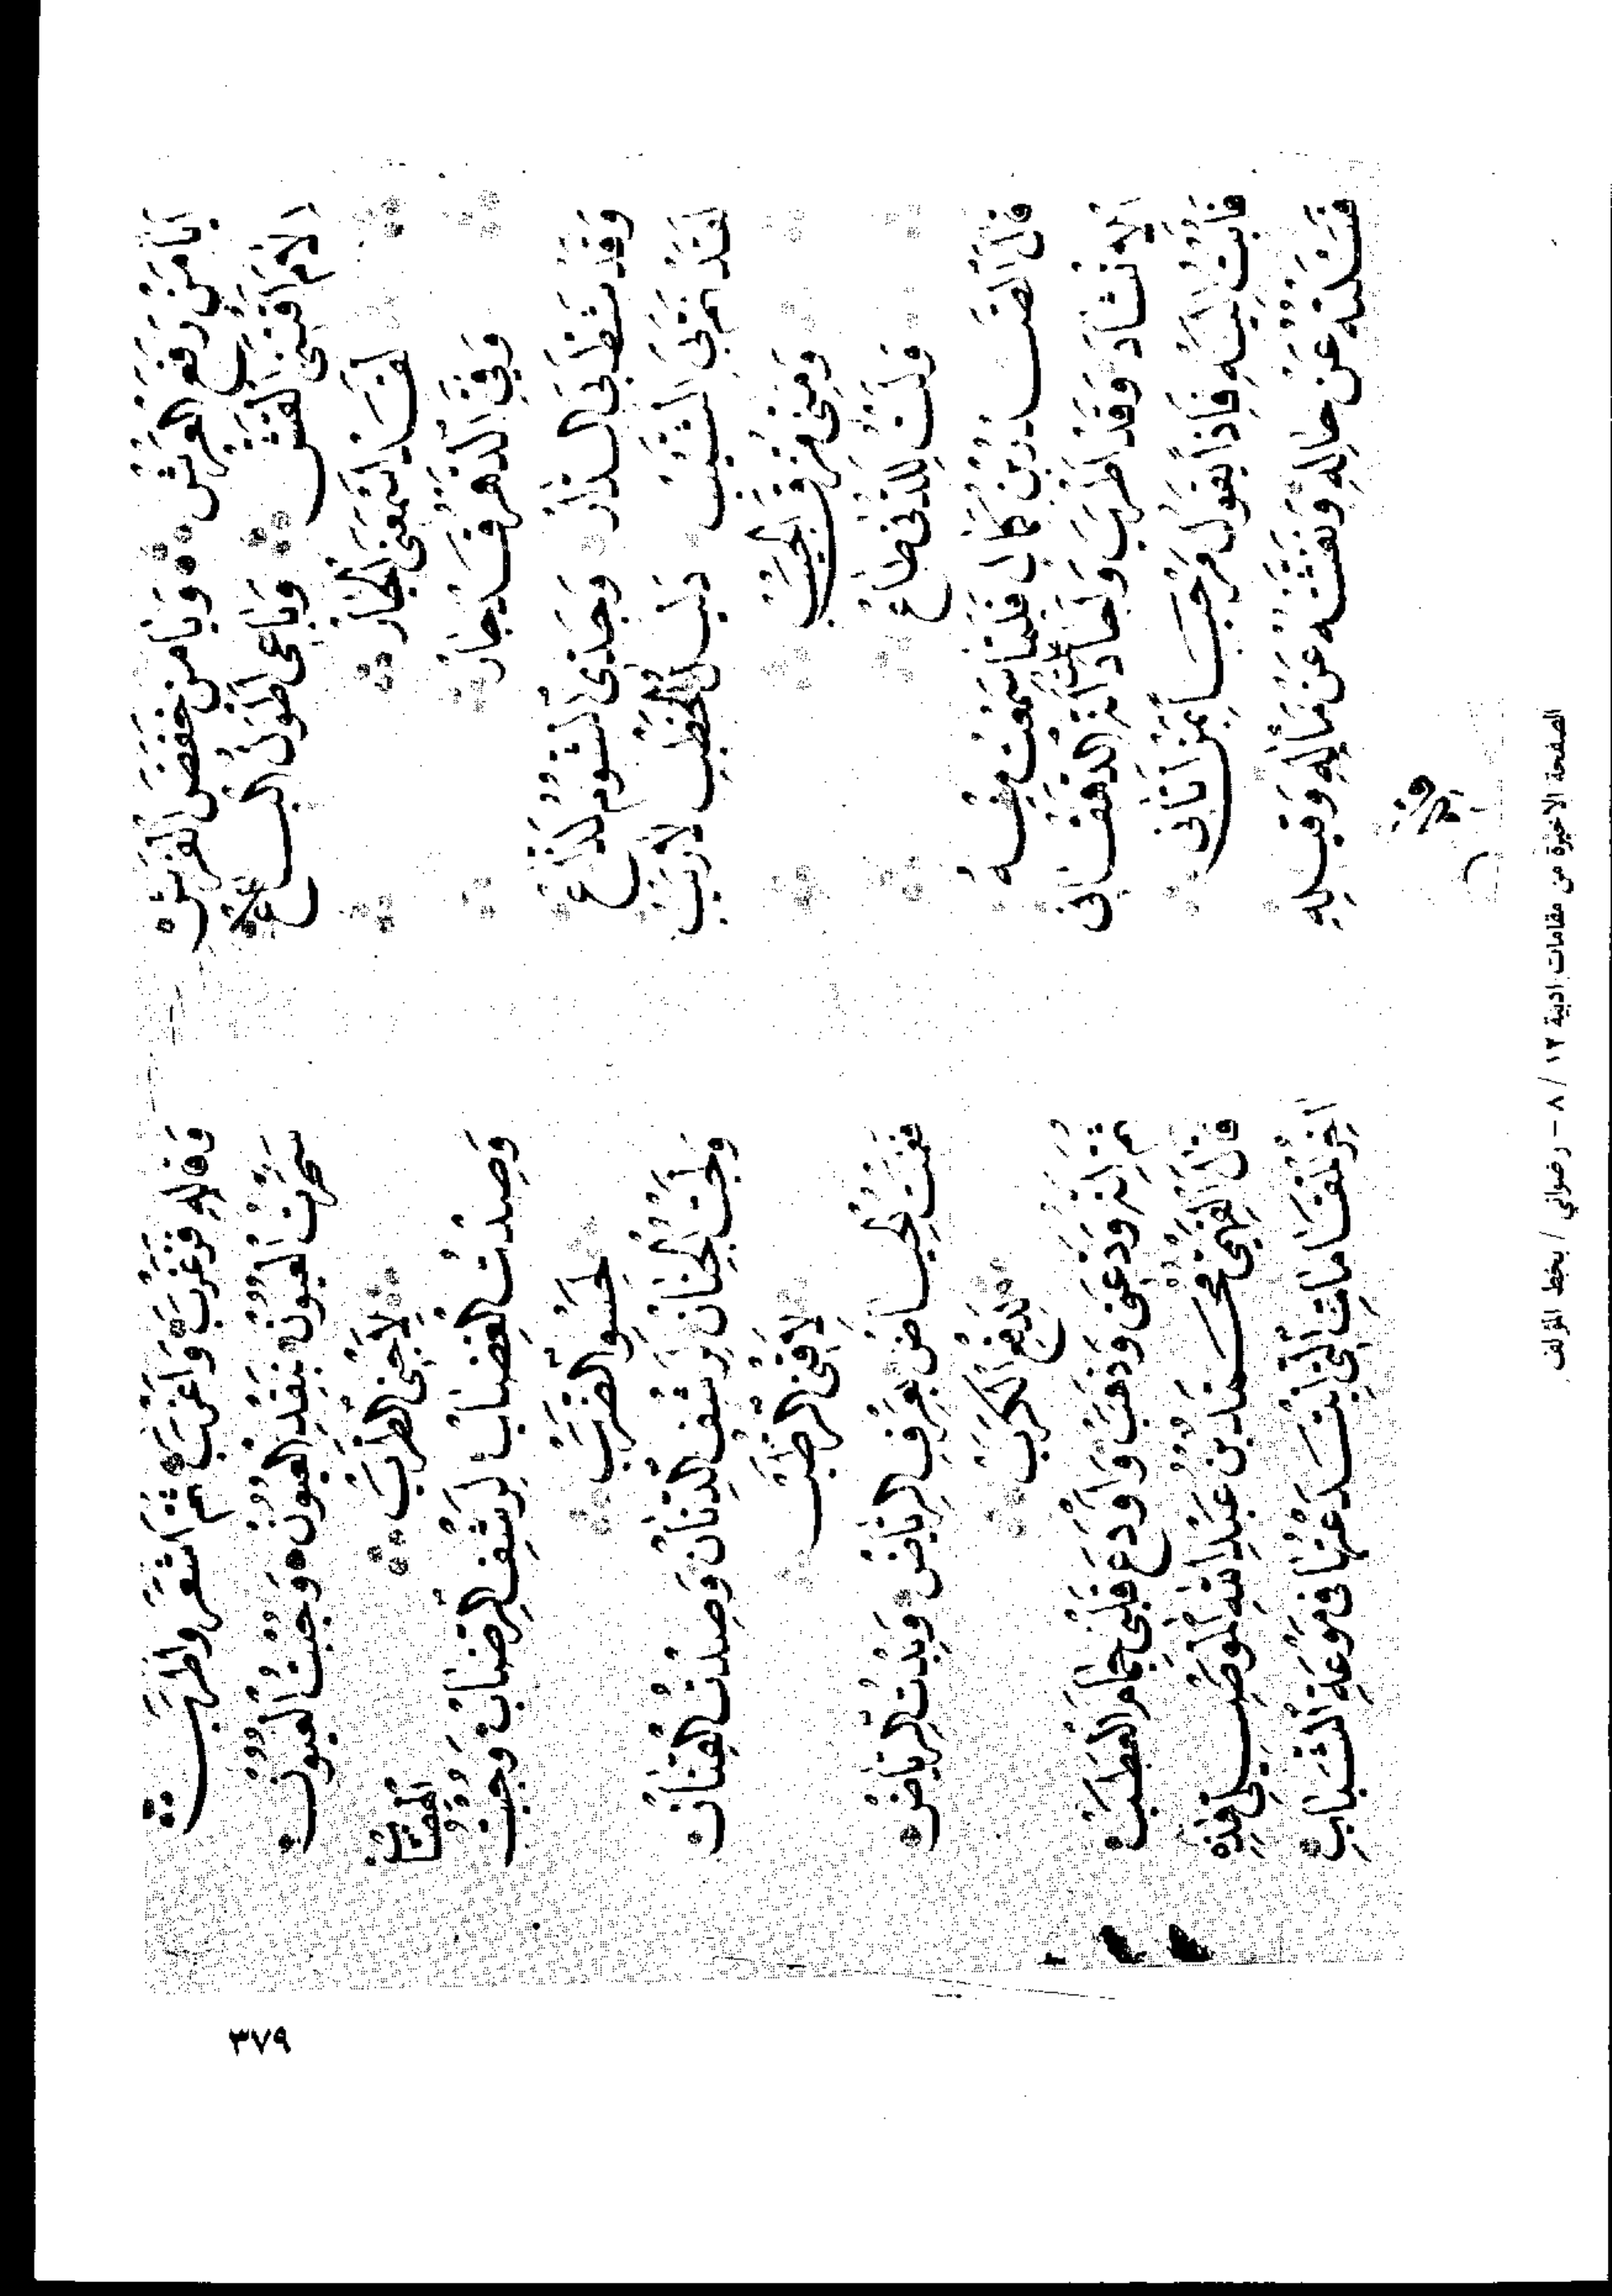 اَيَا مَنْ رَفَعَ العَرْشْ وَيَا مَنْ خَفَضَ الفَرْشْ
الامَ اقْتَنى القَشْ وَبَاعى اَطْوَلُ البَاعْ
لَقَدْ اَسْمَعَنى الجَارْ
وَفِيَّ الدَّهْرُ قَدْ جَارْ
وَقَدْ شَطَّ بىَ الدَارْ وَجَدّى الشُوم لَذَّاعْ
لَقَدْ نَمَّ بىَ الشَّيْبْ دَليلُ الخَطْبِ لاَرَيْبْ
وَمِنّى مُزِّقَ الجَيْبْ
وَلَسْتُ لِلدُّنى طَاعْ
قالَ القَسْدَرُ بْنُ كَانَ فَلَمَّا سَمِعْتُ مِنْهُ
الاِنْشَادَ وَقَدْ اَطْرَبَ وَاَجَادَ
فَاَتَيْتُ اِلَيْهِ فَاِذَا يَقُولُ مَرْحَبًا بِمَنْ اَتَانى
فَسَئَلْتُهُ عَنْ حَالِهِ وَفَتَّشْتُهُ عَنْ مَآلِهِ وَقيلِهِ
وَقَالِهِ فَغَرَّبَ وَاَعْرَبَ ثُمَّ اَشْعَرَ وَاَطْرَبْ
سَحَرْتُ العُيُونْ بِنَقْدِ العُيُونْ وَجُبْتُ العُيُونْ
لاَجْنى الطَّرَبْ
وَصِدْتُ الغِضَابْ لِرَشْفِ الرُّضَابْ وَجُبْتُ الهِضَابْ
لِحَسْوِ الضَّرَبْ
وَلَجْتُ الجِنَانْ لِرَشْفِ الدِّنَانْ وَصِدْتُ القِيَانْ
لاَقْنى الرُّطَبْ
فَفُتُّ الحِيَاضْ بِعَرْفِ الرِّيَاضْ وَبِدْتُ الرِّيَاضْ
لِدَفْعِ الكُرَبْ
ثُمَّ اِنَّهُ وَدَّعَنى وَذَهَبْ وَاَوْدَعَ قَلْبى جِمَامَ العَطَبْ
قالَ الفَهْمى مُحَمَّدُ بْنُ عَبْدِ اللّهِ المُوصِلى هذِهِ
اخِرُ المَقَامَاتِ الَّتى ابْتَدَعْنَا فى فَرْعَةِ الشَّبَابِ
الصفحة الاخيرة من مقامات ادبية ١٣ / ٨ - رضواني / بخط المؤلف
٣٧٩